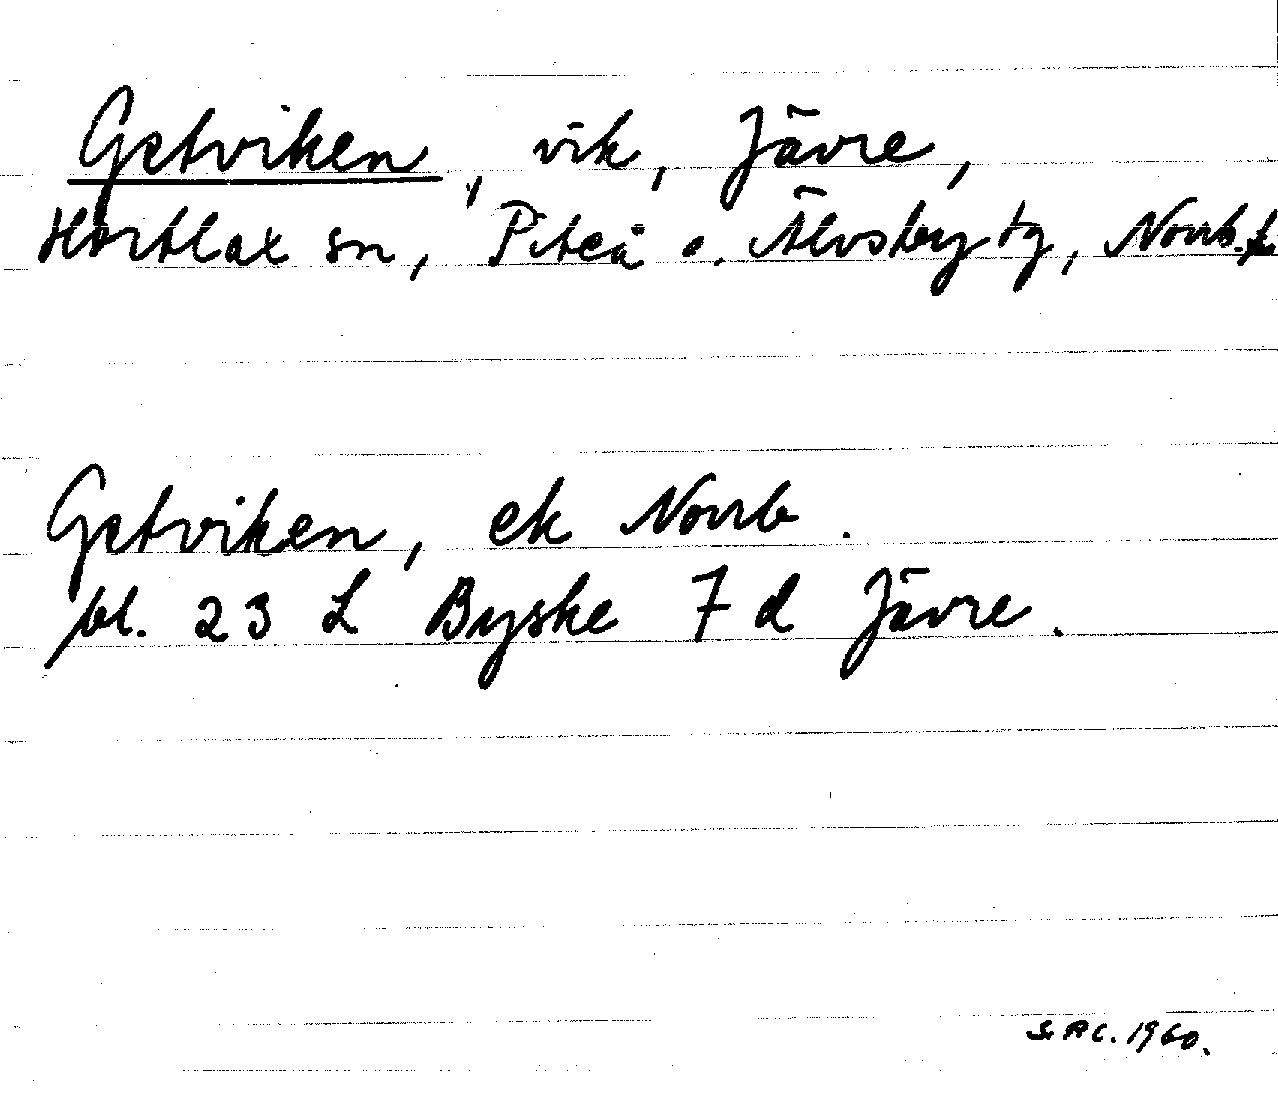 Getviken, vik, Jävre,
Hortlax sn, Piteå o. Älvsby tg, Norrb. l.
Getviken, ek Norrb.
bl. 23 L Byske 7 d Jävre.
1960.